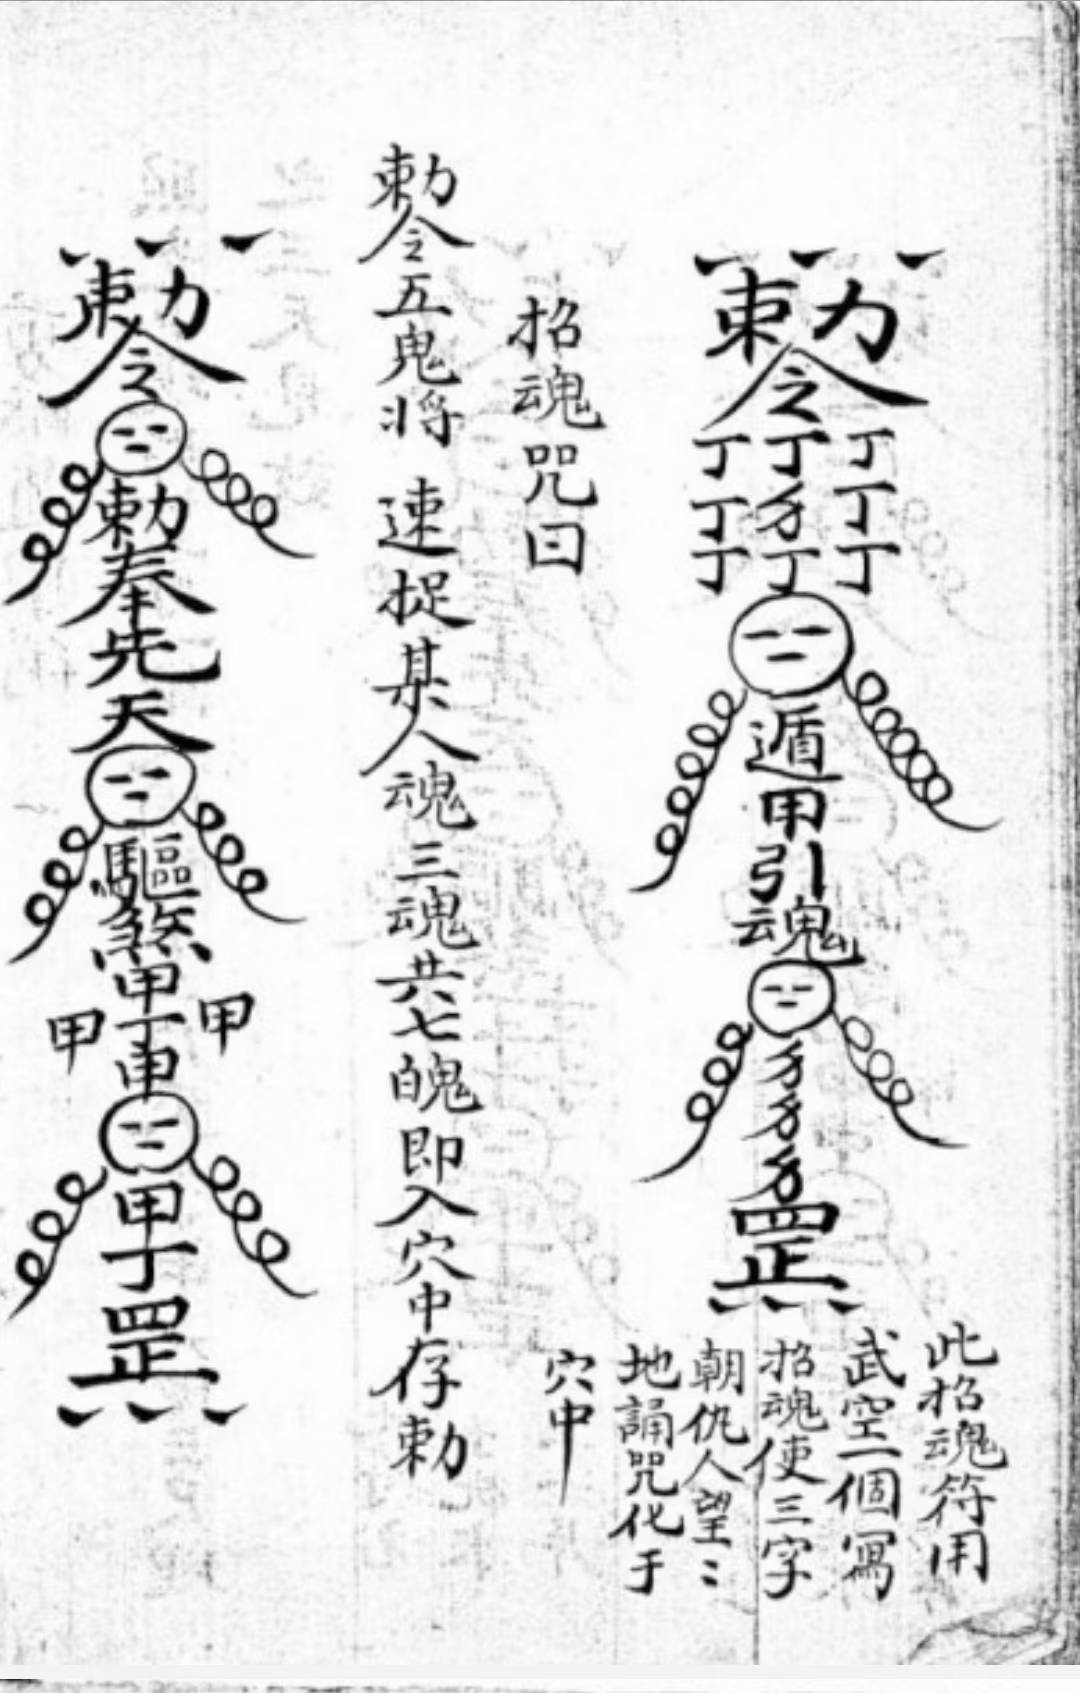 勅令
丁丁丁
丁
丁丁
丁丁丁
遁甲引魂
罡
此招魂符用
武空一個寫
招魂使三字
朝仇人望〻
地誦咒化于
穴中
招魂咒曰
勅令五鬼将 速捉某人魂三魂共七魄即入穴中存勅
勅令
勅奉先天
驅煞甲
甲丁甲
甲丁罡